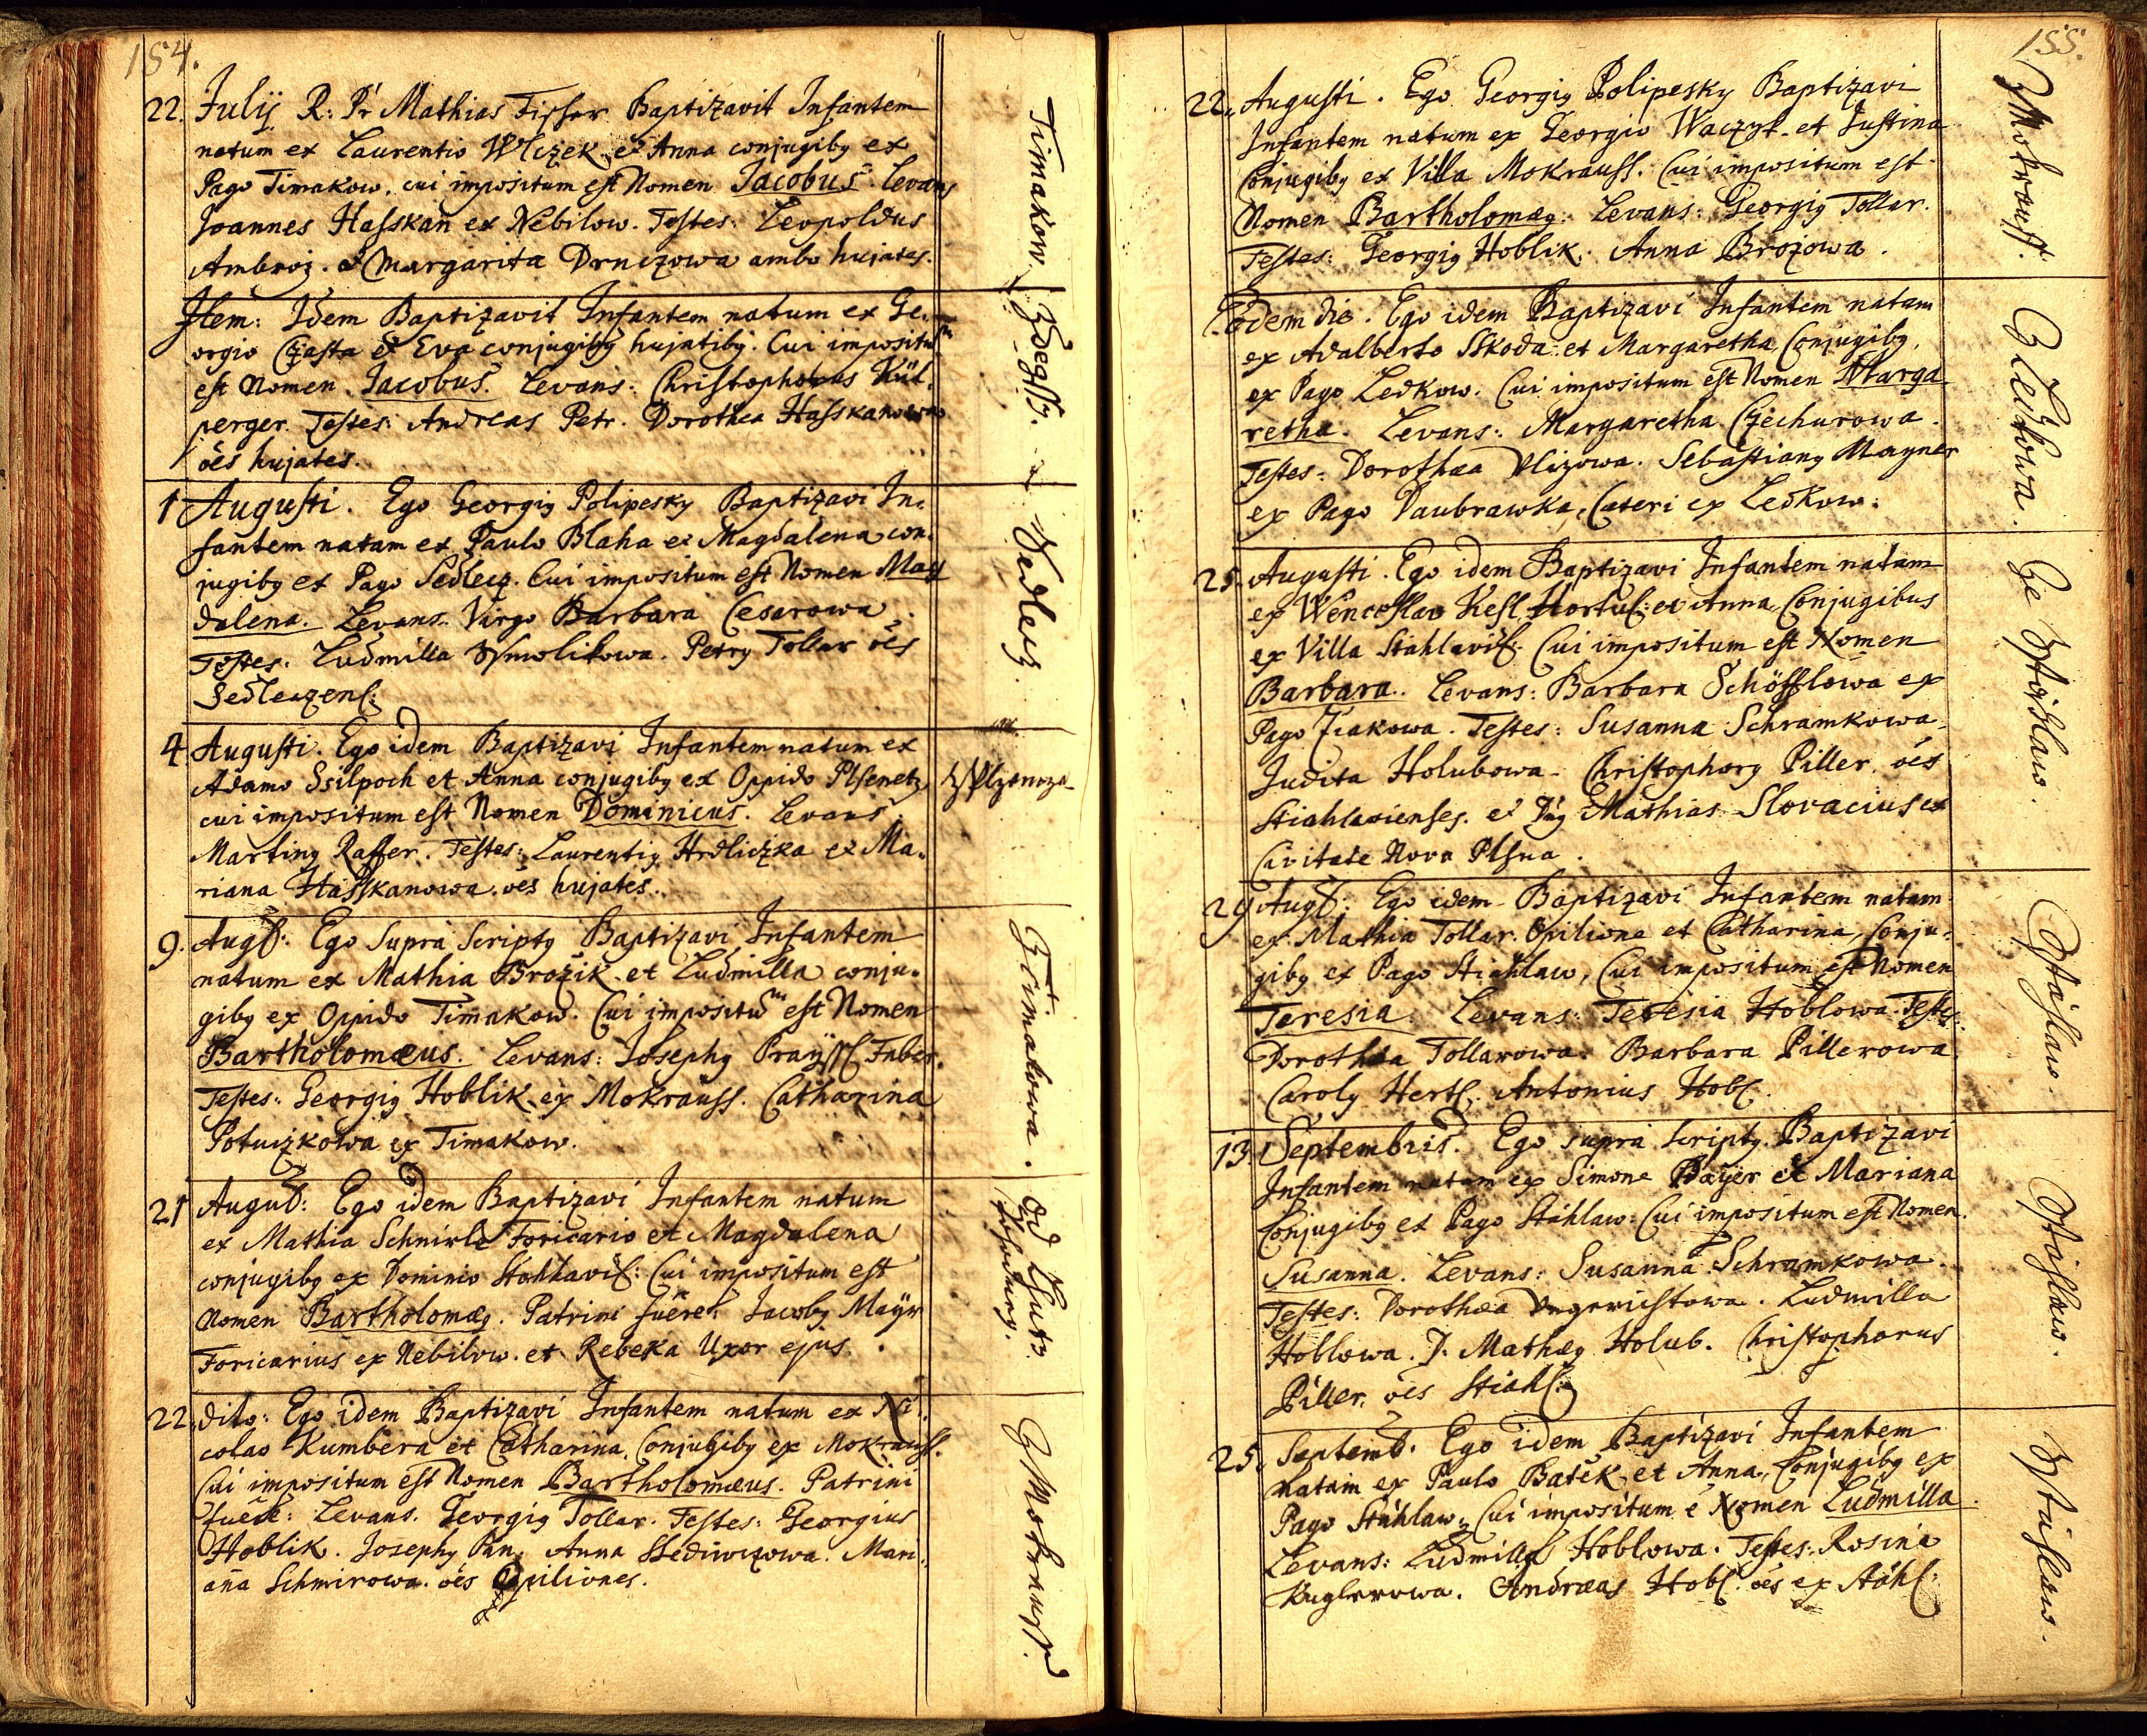 154.
22. Julij R: Pr Mathias Fisser Baptizavit Infantem
natum ex Laurentio Wlczek et Anna conjugiby ex
Pago Timakow. cui impositum est Nomen Jacobus. Levans
Joannes Hasskan ex Nebilow. Testes: Leopoldus
Ambroz. et Margarita Drniczowa ambo hujates.
Timakow
Item: Idem Baptizavit Infantem natum ex Ge-
orgio Czasta et Eva conjugiby hujatiby. Cui impositum
est Nomen Jacobus. Levans: Christophorus Kül-
perger. Testes: Andreas Petr. Dorothea Hasskanowa
oes hujates.
1 Augusti. Ego Georgig Polipesky Baptizavi In-
fantem natam ex Paulo Blaha et Magdalena con-
jugiby ex Pago Sedlecz. Cui impositum est Nomen Mag
dalena. Levans. Virgo Barbara Cesarowa.
Testes: Ludmilla Smolikowa. Petry Tollar oes
Sedleczens:
Sedlecz
4 Augusti. Ego idem Baptizavi Infantem natum ex
Adamo Ssilpoch et Anna conjugiby ex Oppido Plsenetz
cui impositum est Nomen Dominicus. Levans
Marting Raffer. Testes: Laurentig Hrdliczka et Ma-
riana Hasskanowa. oes hujates.
9. Aug: Ego Supra Scripty Baptizavi Infantem
natum ex Mathia Brozik et Ludmilla conju-
giby ex Oppido Timakow. Cui impositum est Nomen
Bartholomæus. Levans: Josephy Fabes.
Testes: Georgig Hoblik ex Mokrauss. Catharina
Potuczkowa ex Timakow.
Z Timakowa.
21 August: Ego idem Baptizavi Infantem natum
ex Mathia Schnirle Foricario et Magdalena
conjugiby ex Dominio Stahlavi: Cui impositum est
Nomen Bartholomæg. Patrini fuere: Jacoby Mayr
Foricarius ex Nebilow. et Rebeka Uxor ejus.
22. dito: Ego idem Baptizavi Infantem natum ex Ni-
colao Kumbera et Catharina Conjugiby ex Mokrauss.
Cui impositum est Nomen Bartholomæus. Patrini
fuere: Levans. Georgig Tollar. Testes: Georgius
Hoblik. Josephy Pan. Anna Mari-
ana Schmirowa. oes Opiliones.
Z Mokrauss.
155.
22. Augusti. Ego Georgig Polipesky Baptizavi
Infantem natum ex Georgio Waczyk et Justina
Conjugiby ex Villa Mokrauss. Cui impositum est
Nomen Bartholomæg: Levans: Georgig Tollar.
Testes: Georgig Hoblik. Anna Brozowa.
Z Mokrauss.
Eodem die. Ego idem Baptizavi Infantem natam
ex Adalberto Skoda et Margaretha Conjugiby
ex Pago Ledkow. Cui impositum est Nomen Marga-
retha. Levans: Margaretha Czechurowa.
Testes: Dorothæa Ulizowa. Sebastiany Mayner
ex Pago Daubrawka, Cæteri ex Ledkow.
Z Ledkowa.
25. Augusti. Ego idem Baptizavi Infantem natam
ex Wenceslao Kesl Hortul: et Anna Conjugibus
ex Villa Stahlavi. Cui impositum est Nomen
Barbara. Levans: Barbara Schösslowa ex
Pago Ziakowa. Testes: Susanna Schramkowa
Judita Holubowa. Christophory Piller. oes
Stiahlavienses. et Mathias Slovacius ex
Civitate Nova Plsna.
29 Aug: Ego idem Baptizavi Infantem natam
ex Mathia Tollar. Opilione et Catharina, Conju-
giby ex Pago Stiahlaw, Cui impositum est Nomen
Teresia. Levans: Teresia Hoblowa. Testes
Dorothæa Tollarowa. Barbara Pillerowa
Caroly Hertl. Antonius Hobl.
Z Stáhlaw.
13. Septembris. Ego supra scripty Baptizavi
Infantem natam ex Simone Bayer et Mariana
Conjugiby ex Pago Stáhlaw: Cui impositum est Nomen
Susanna. Levans: Susanna Schramkowa.
Testes: Dorothæa Ludmilla
Hoblowa. Mathæg Holub. Christophorus
Piller. oes Stiahl:
Z Stáhlaw.
25. Septemb. Ego idem Baptizavi Infantem
natam ex Paulo Batěk et Anna, Conjugiby ex
Pago Stáhlaw, Cui impositum e Nomen Ludmilla.
Levans: Ludmilla Hoblowa. Testes: Rosina
Kuglerowa. Andræas Hobl. oes ex Stáhl:
Z Stáhlaw.